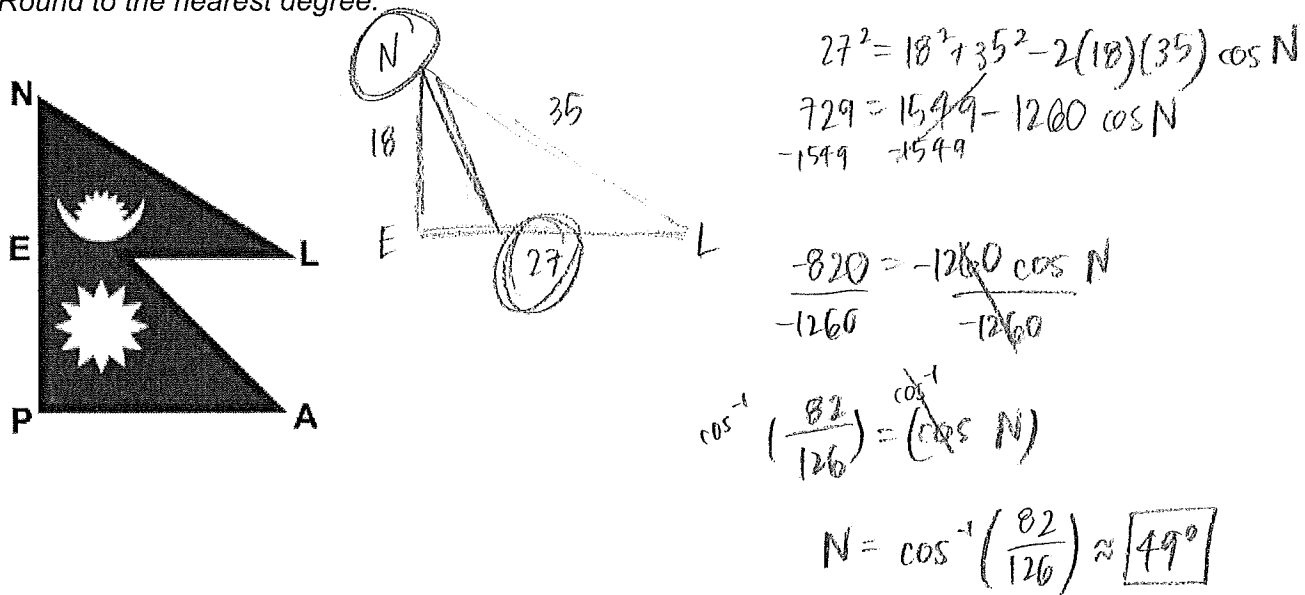 Round to the nearest degree.
N
E
L
P
A
N
18
35
E
27
L
27² = 18² + 35² - 2(18)(35) cos N
729 = 1549 - 1260 cos N
-1549 -1549
-820 = -1260 cos N
-1260 -1260
cos⁻¹ (82/126) = cos⁻¹ (cos N)
N = cos⁻¹ (82/126) ≈ 49°